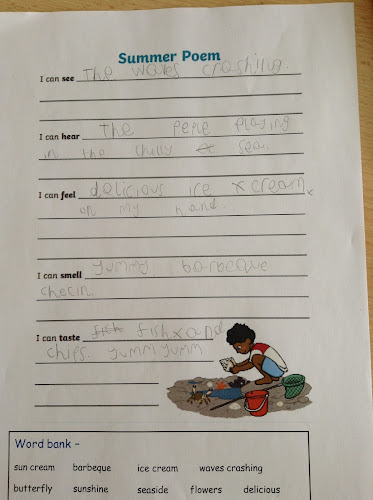 Summer Poem
I can see The waves crashing.
I can hear The peple playing
in the chilly sea.
I can feel delicious ice cream
on my hand.
I can smell yummy barbeque
checin.
I can taste fish fish and
chips. yummyumm
Word bank -
sun cream barbeque ice cream waves crashing
butterfly sunshine seaside flowers delicious